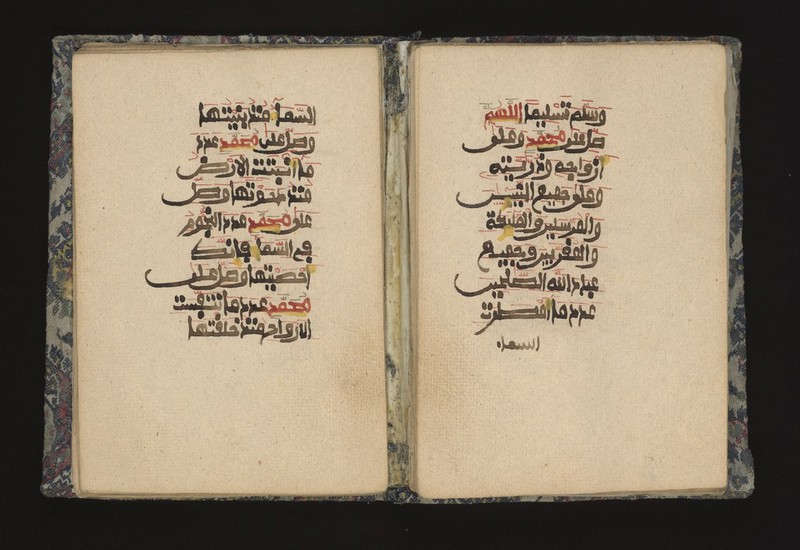 وسلم تسليما اللهم
صل على محمد وعلى
ازواجه وذريته
وعلى جميع النبيين
والمرسلين والملئكة
والمقربين وجميع
عباد الله الصلحين
عدد ما امطرت
السماء
السماء منذ بنيتها
وصل على محمد عدد
ما انبتت الارض
منذ دحوتها وصل
على محمد عدد النجوم
في السماء فانك
احصيتها وصل على
محمد عدد ما تنفست
الارواح منذ خلقتها